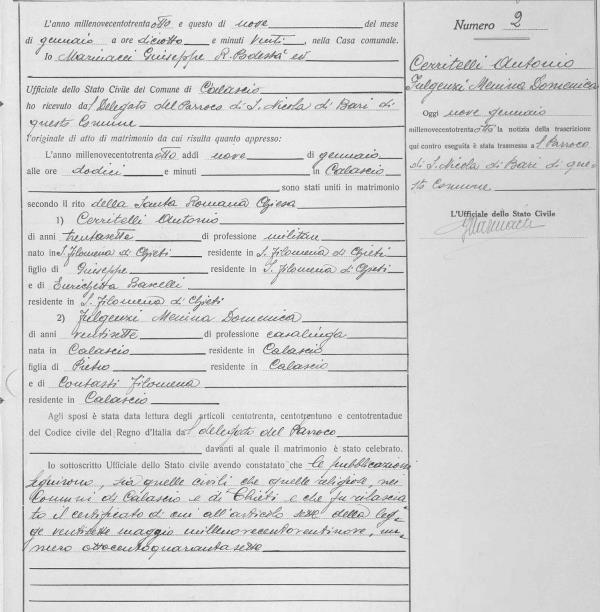 L'anno millenovecentotrentaotto e questo dì nove del mese
di gennaio a ore diciotto e minuti venti, nella Casa comunale.
Io Marinacci Giuseppe R. Podestà ed
Ufficiale dello Stato Civile del Comune di Calascio
ho ricevuto dal Delegato del Parroco di S. Nicola di Bari di
questo Comune
l'originale di atto di matrimonio da cui risulta quanto appresso:
L'anno millenovecentotrentaotto addì nove di gennaio
alle ore dodici e minuti in Calascio
sono stati uniti in matrimonio
secondo il rito della Santa Romana Chiesa
1) Cerritelli Antonio
di anni trentasette di professione militare
nato in S. Filomena di Chieti residente in S. Filomena di Chieti
figlio di Giuseppe residente in S. Filomena di Chieti
e di Enrichetta Bascelli
residente in S. Filomena di Chieti
2) Fulgenzi Menina Domenica
di anni ventisette di professione casalinga
nata in Calascio residente in Calascio
figlia di Pietro residente in Calascio
e di Contasti Filomena
residente in Calascio
Agli sposi è stata data lettura degli articoli centotrenta, centotrentuno e centotrentadue
del Codice civile del Regno d'Italia dal delegato del Parroco
davanti al quale il matrimonio è stato celebrato.
Io sottoscritto Ufficiale dello Stato civile avendo constatato che le pubblicazioni
seguirono, sia quelle civili che quelle religiose, nei
Comuni di Calascio e di Chieti e che fu rilascia-
to il certificato di cui all'articolo sette della leg-
ge ventisette maggio millenovecentoventinove, nu-
mero ottocentoquarantasette
Numero 2
Cerritelli Antonio
Fulgenzi Menina Domenica
Oggi nove gennaio
millenovecentotrentaotto la notizia della trascrizione
qui contro eseguita è stata trasmessa al Parroco
di S. Nicola di Bari di que-
sto Comune
L'Ufficiale dello Stato Civile
GMarinacci